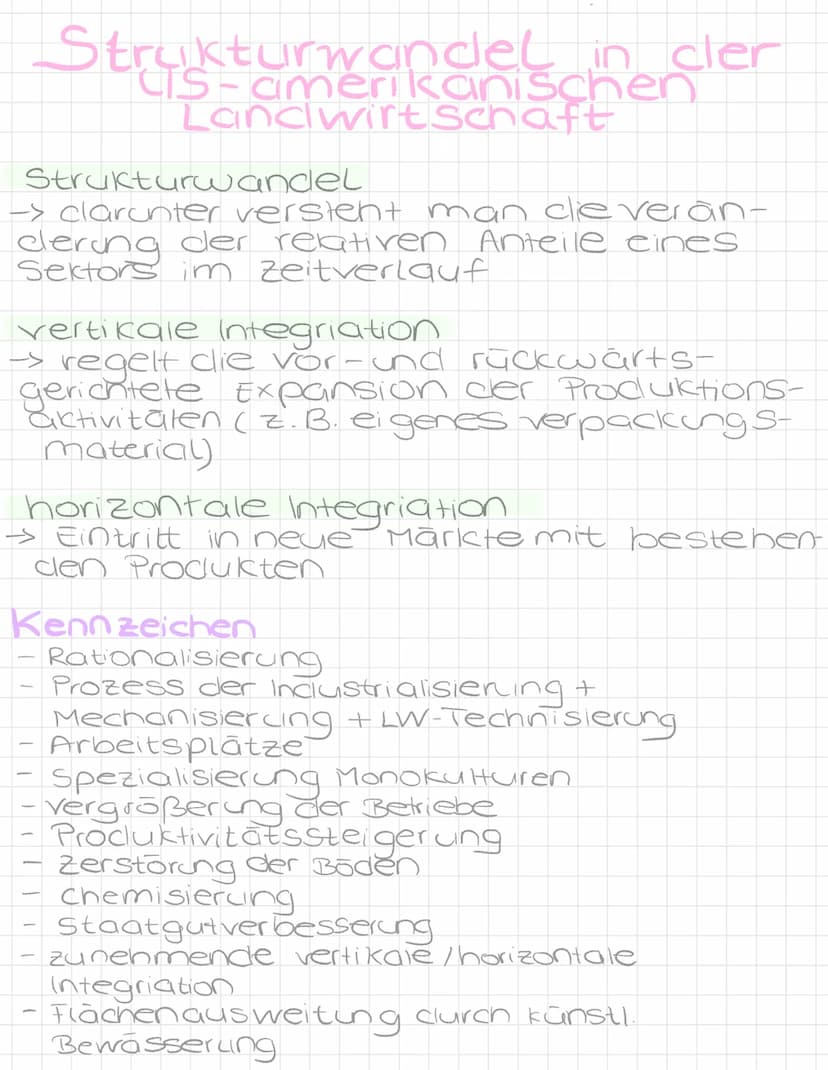 Strukturwandel in der
US-amerikanischen
Landwirtschaft
Strukturwandel
-> darunter versteht man die verän-
derung der relativen Anteile eines
Sektors im Zeitverlauf
vertikale Integriation
-> regelt die vor-und rückwärts-
gerichtete Expansion der Produktions-
aktivitäten (z.B. eigenes verpackungs-
material)
horizontale Integriation
-> Eintritt in neue Märkte mit bestehen-
den Produkten
Kennzeichen
- Rationalisierung
- Prozess der Industrialisierung +
Mechanisierung + LW-Technisierung
- Arbeitsplätze
- Spezialisierung Monokulturen
- vergrößerung der Betriebe
- Produktivitätssteigerung
- Zerstörung der Böden
- Chemisierung
- Staatgutverbesserung
- zunehmende vertikale/horizontale
Integriation
- Flächenausweitung durch künstl.
Bewässerung